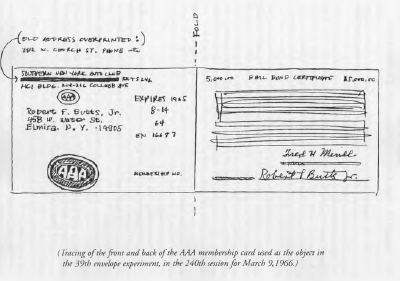 (OLD ADDRESS OVERPRINTED:)
W. CHURCH ST. PHONE
FOLD
SOUTHERN NEW YORK AUTO CLUB
HCI BLDG. COLLEGE AVE
AAA
Robert F. Butts, Jr.
458 W. WATER ST.
Elmira, N.Y. 14905
EXPIRES 1965
8-14
64
MEMBERSHIP NO.
AAA
5,000.00 BAIL BOND CERTIFICATE $5,000.00
Fred H
Robert F Butts Jr.
(Tracing of the front and back of the AAA membership card used as the object in
the 39th envelope experiment, in the 240th session for March 9, 1966.)